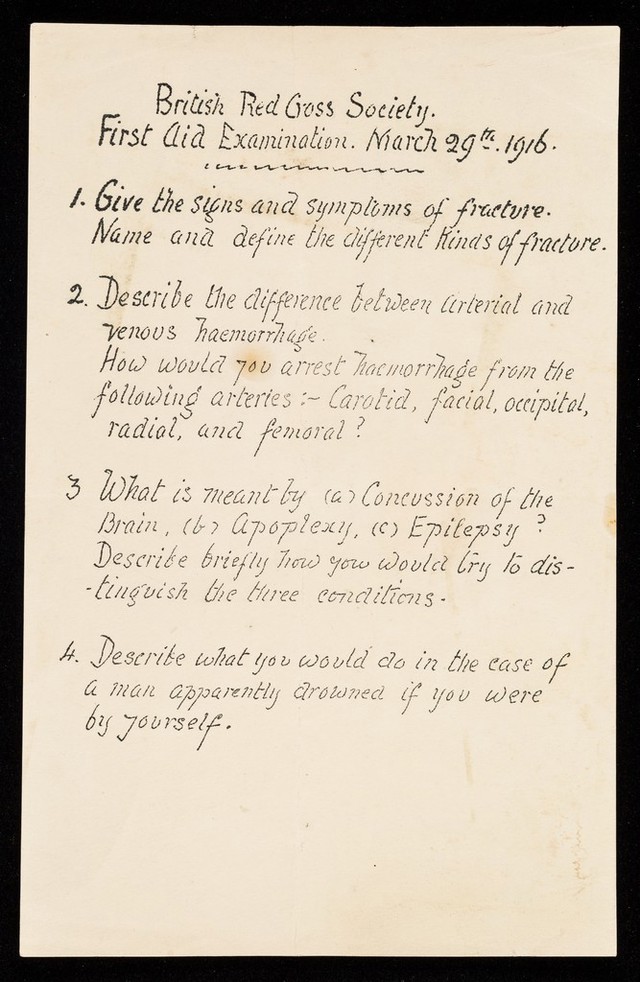 British Red Cross Society.
First Aid Examination. March 29th. 1916.
1. Give the signs and symptoms of fracture.
Name and define the different kinds of fracture.
2. Describe the difference between arterial and
venous haemorrhage.
How would you arrest haemorrhage from the
following arteries :- Carotid, facial, occipital,
radial, and femoral ?
3 What is meant by (a) Concussion of the
Brain, (b) Apoplexy, (c) Epilepsy ?
Describe briefly how you would try to dis-
-tinguish the three conditions.
4. Describe what you would do in the case of
a man apparently drowned if you were
by yourself.